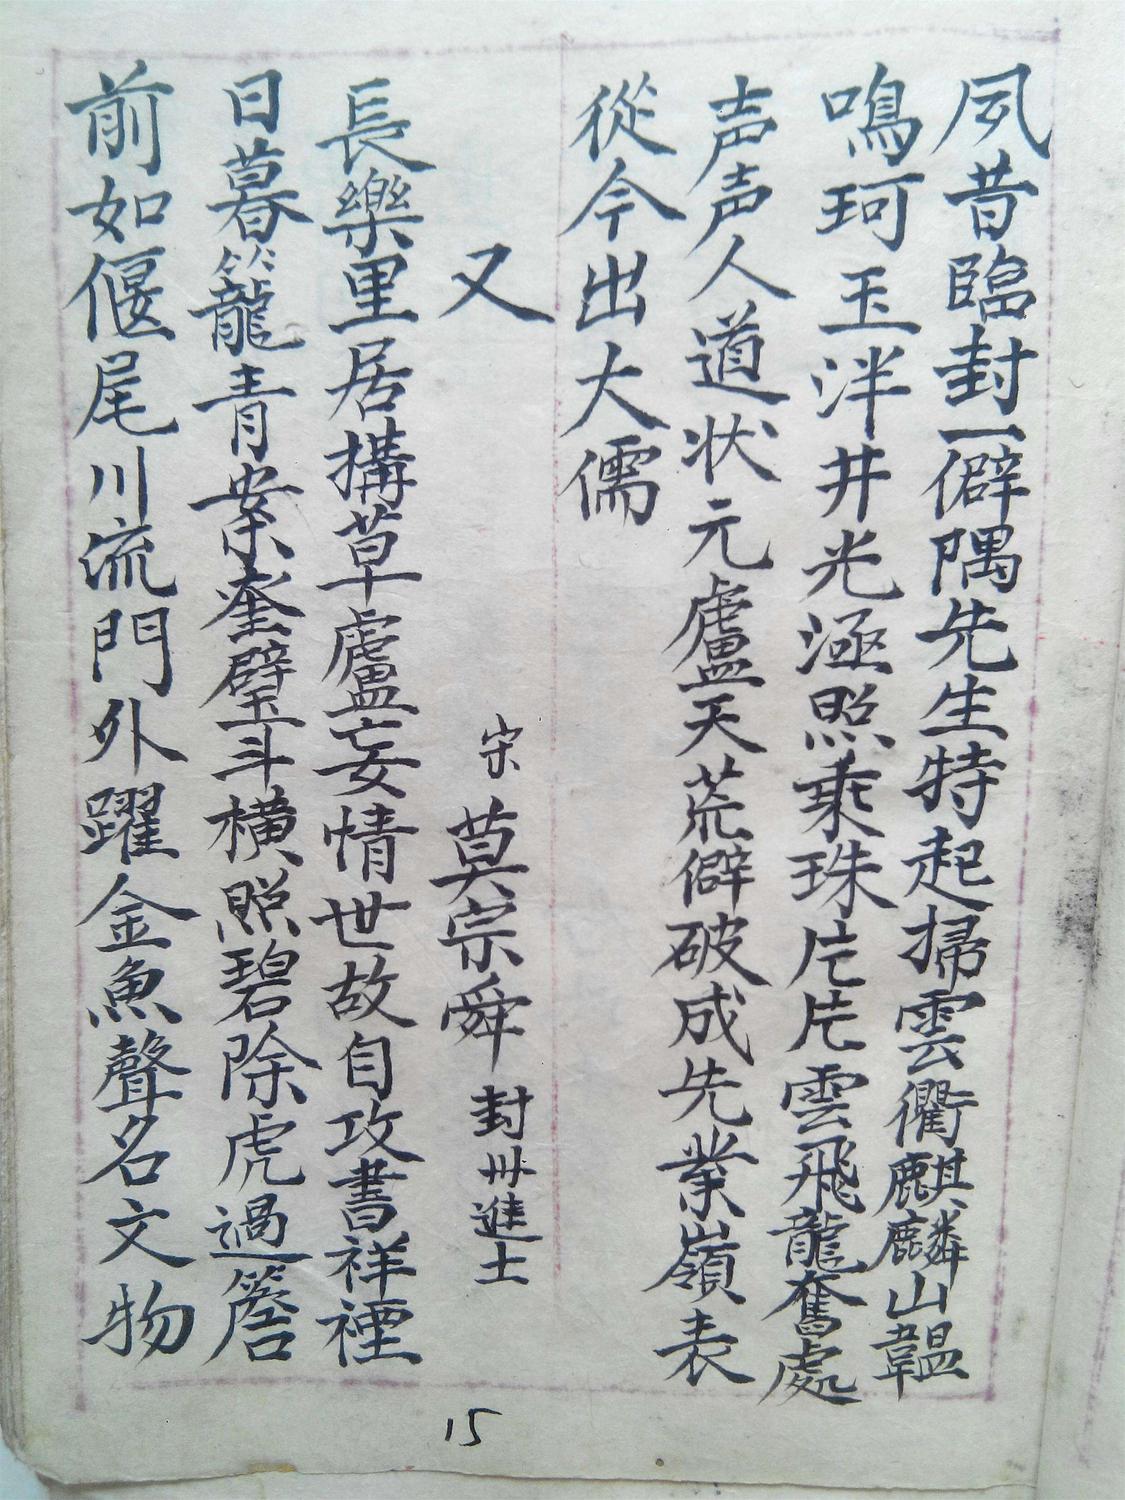 夙昔臨封一僻隅先生特起掃雲衢麒麟山韞
鳴珂玉泮井光涵照乘珠片片雲飛龍奮處
声声人道状元廬天荒僻破成先業嶺表
從今出大儒
又 宋 莫宗舜 封卅進士
長樂里居搆草廬妄情世故自攻書祥禋
日暮籠青案奎璧斗橫照碧除虎過簷
前如偃尾川流門外躍金魚聲名文物
15